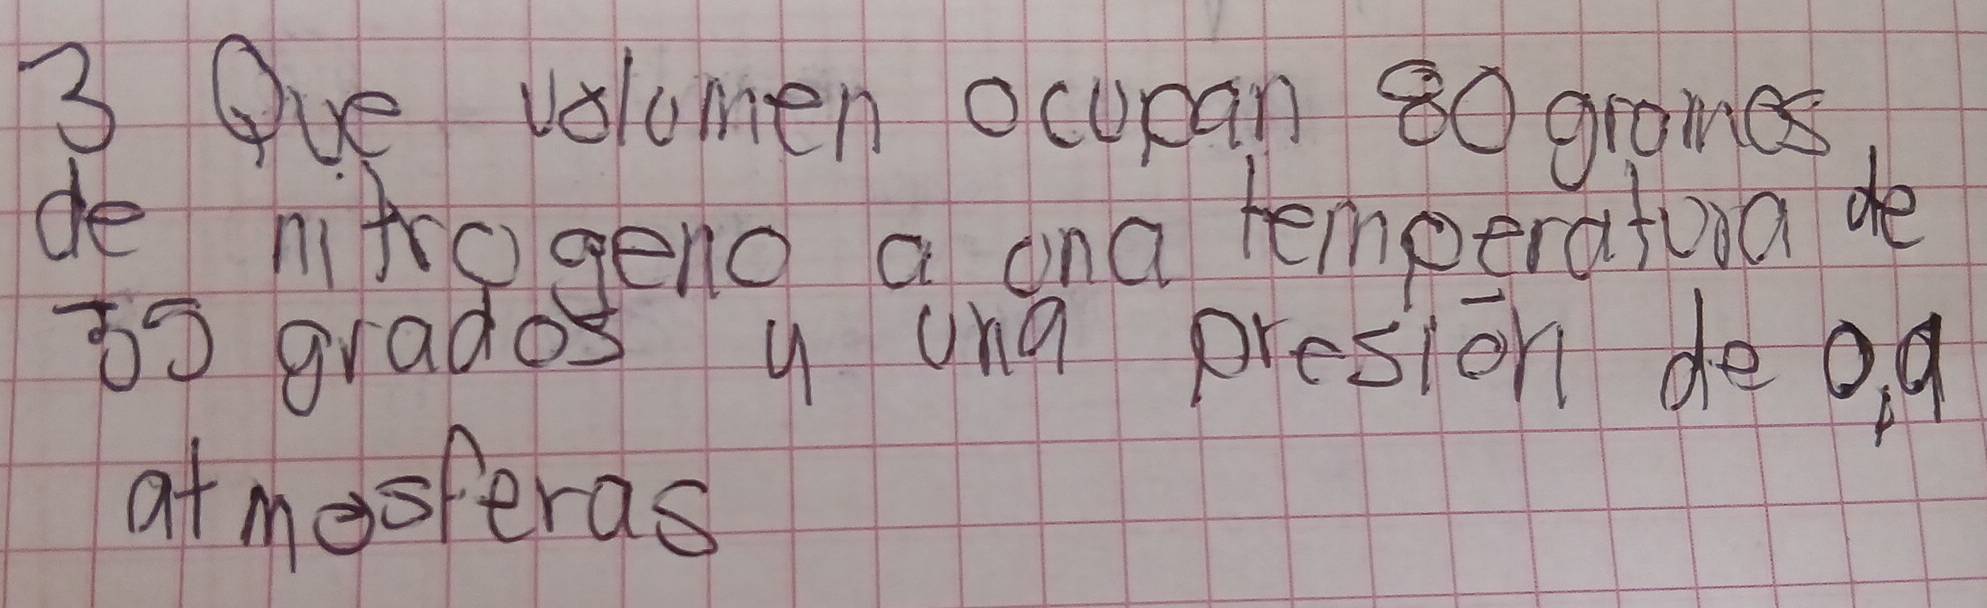 3 Que volumen ocupan 80 gramos
de nitrogeno a una temperatura de
35 grados y una presión de 0,9
atmosferas